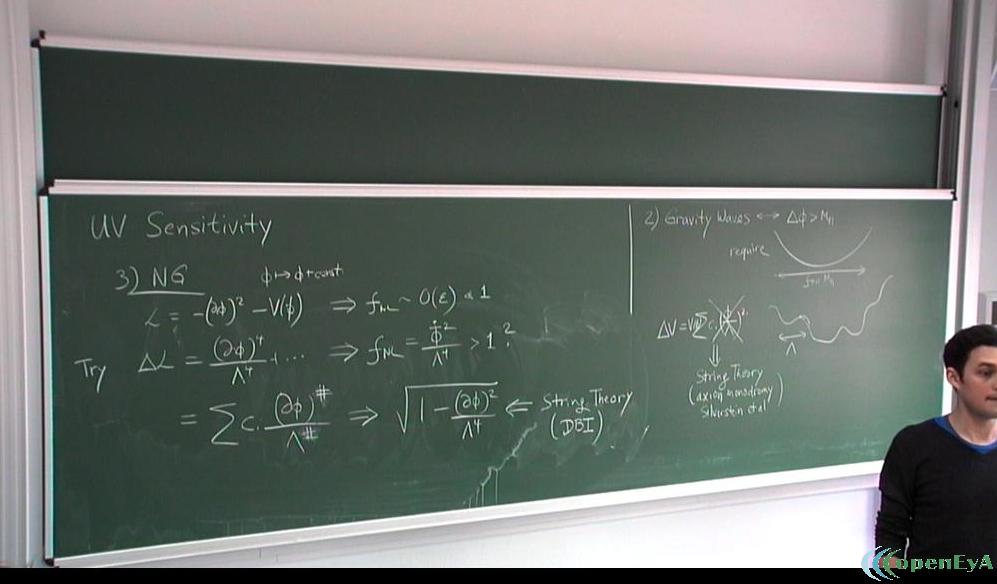 UV Sensitivity
3) NG φ ↦ φ + const
ℒ = -(∂φ)² - V(φ) ⇒ f_NL ~ O(ε) < 1
Try Δℒ = (∂φ)⁴/Λ⁴ + ... ⇒ f_NL = φ̇²/Λ⁴ > 1 ?
= Σ c. (∂φ)^#/Λ^# ⇒ √(1 - (∂φ)²/Λ⁴) ⇐ String Theory
(DBI)
2) Gravity Waves ↔ Δφ > M_Pl
require
ΔV =
Λ
⇓
String Theory
(axion monodromy
Silverstein et al)
openEyA